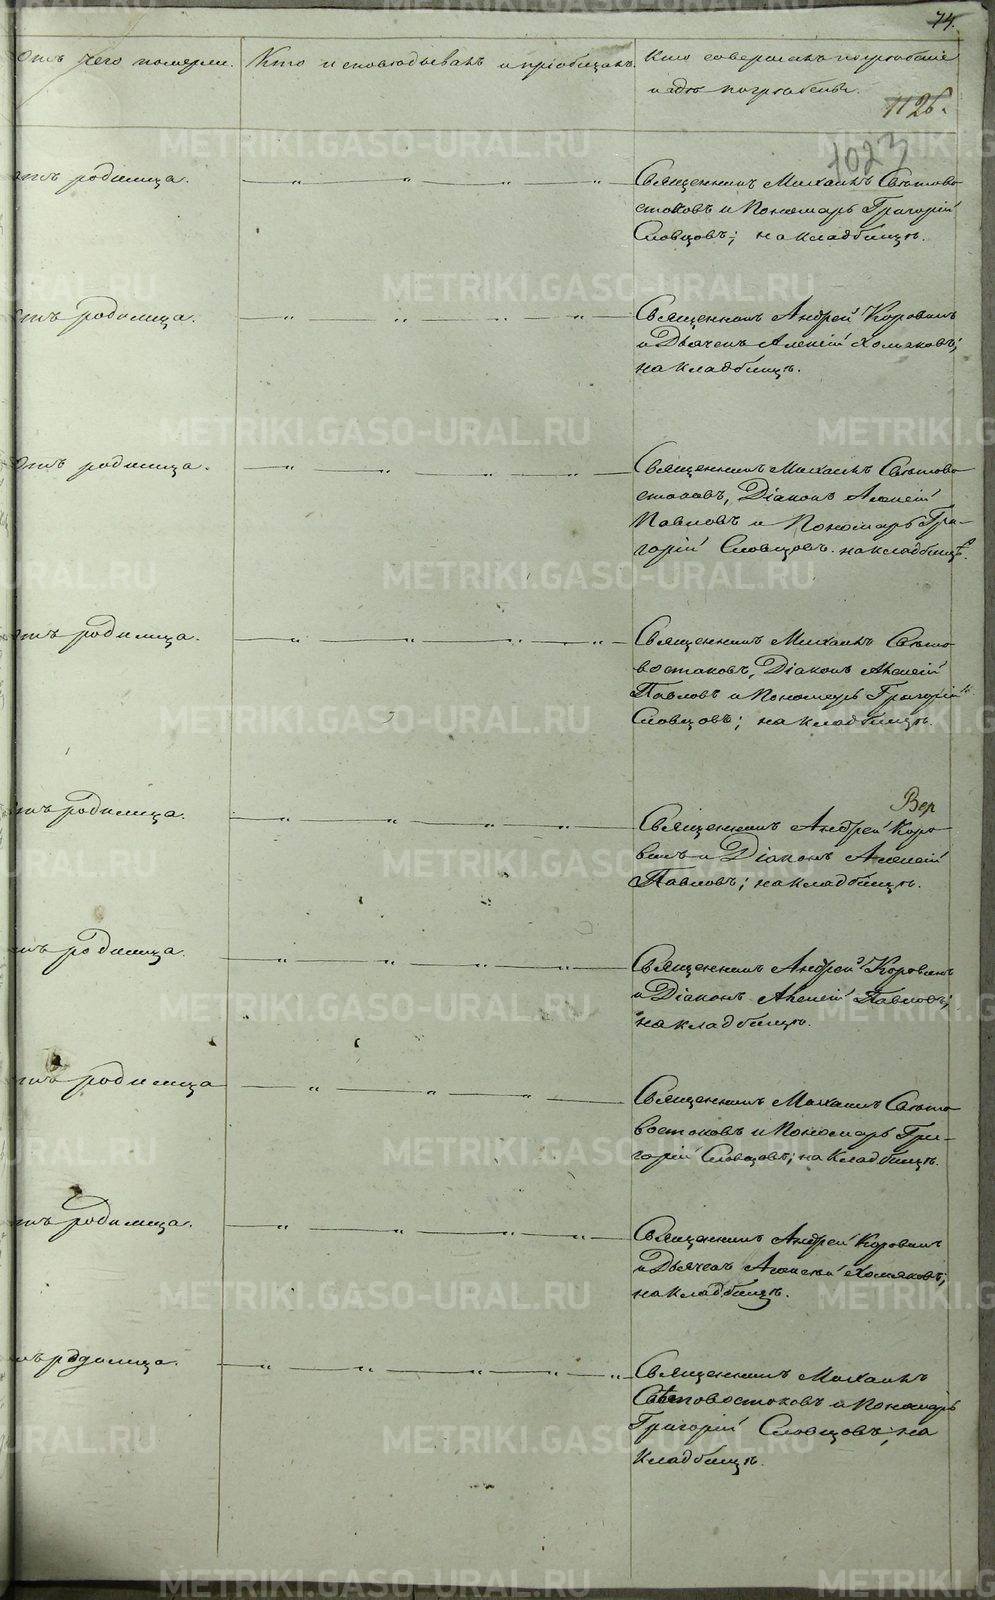 74.
Отъ чего померли. Кто исповѣдывалъ и пріобщалъ. Кто совершалъ погребеніе
и гдѣ погребены.
1126.
1023
отъ родимца. — „ — „ — „ — „ — Священникъ Михаилъ Свѣтово
стоковъ и Пономарь Григорій
Словцовъ; на кладбищѣ.
отъ родимца. — „ — „ — „ — „ — Священникъ Андрей Коровинъ
и Дьячекъ Алексій Хомяковъ;
на кладбищѣ.
Отъ родимца. — „ — „ — „ — „ — Священникъ Михаилъ Свѣтово
стоковъ, Діаконъ Алексій
Павловъ и Пономарь Гри-
горій Словцовъ. на кладбищѣ.
отъ родимца. — „ — „ — „ — „ — Священникъ Михаилъ Свѣто
востоковъ, Діаконъ Алексій
Павловъ и Пономарь Григорій
Словцовъ; на кладбищѣ.
Вер
отъ родимца. — „ — „ — „ — „ — Священникъ Андрей Коро
винъ и Діаконъ Алексій
Павловъ; на кладбищѣ.
отъ родимца. — „ — „ — „ — „ — Священникъ Андрей Коровинъ
и Діаконъ Алексій Павловъ;
на кладбищѣ.
отъ родимца — „ — „ — „ — Священникъ Михаилъ Свѣто
востоковъ и Пономарь Гри-
горій Словцовъ; на кладбищѣ.
отъ родимца. — „ — „ — „ — „ — Священникъ Андрей Коровинъ
и Дьячекъ Алексій Хомяковъ;
на кладбищѣ.
отъ родимца. — „ — „ — „ — „ — „ — Священникъ Михаилъ
Свѣтовостоковъ и Пономарь
Григорій Словцовъ; на
кладбищѣ.
METRIKI.GASO-URAL.RU